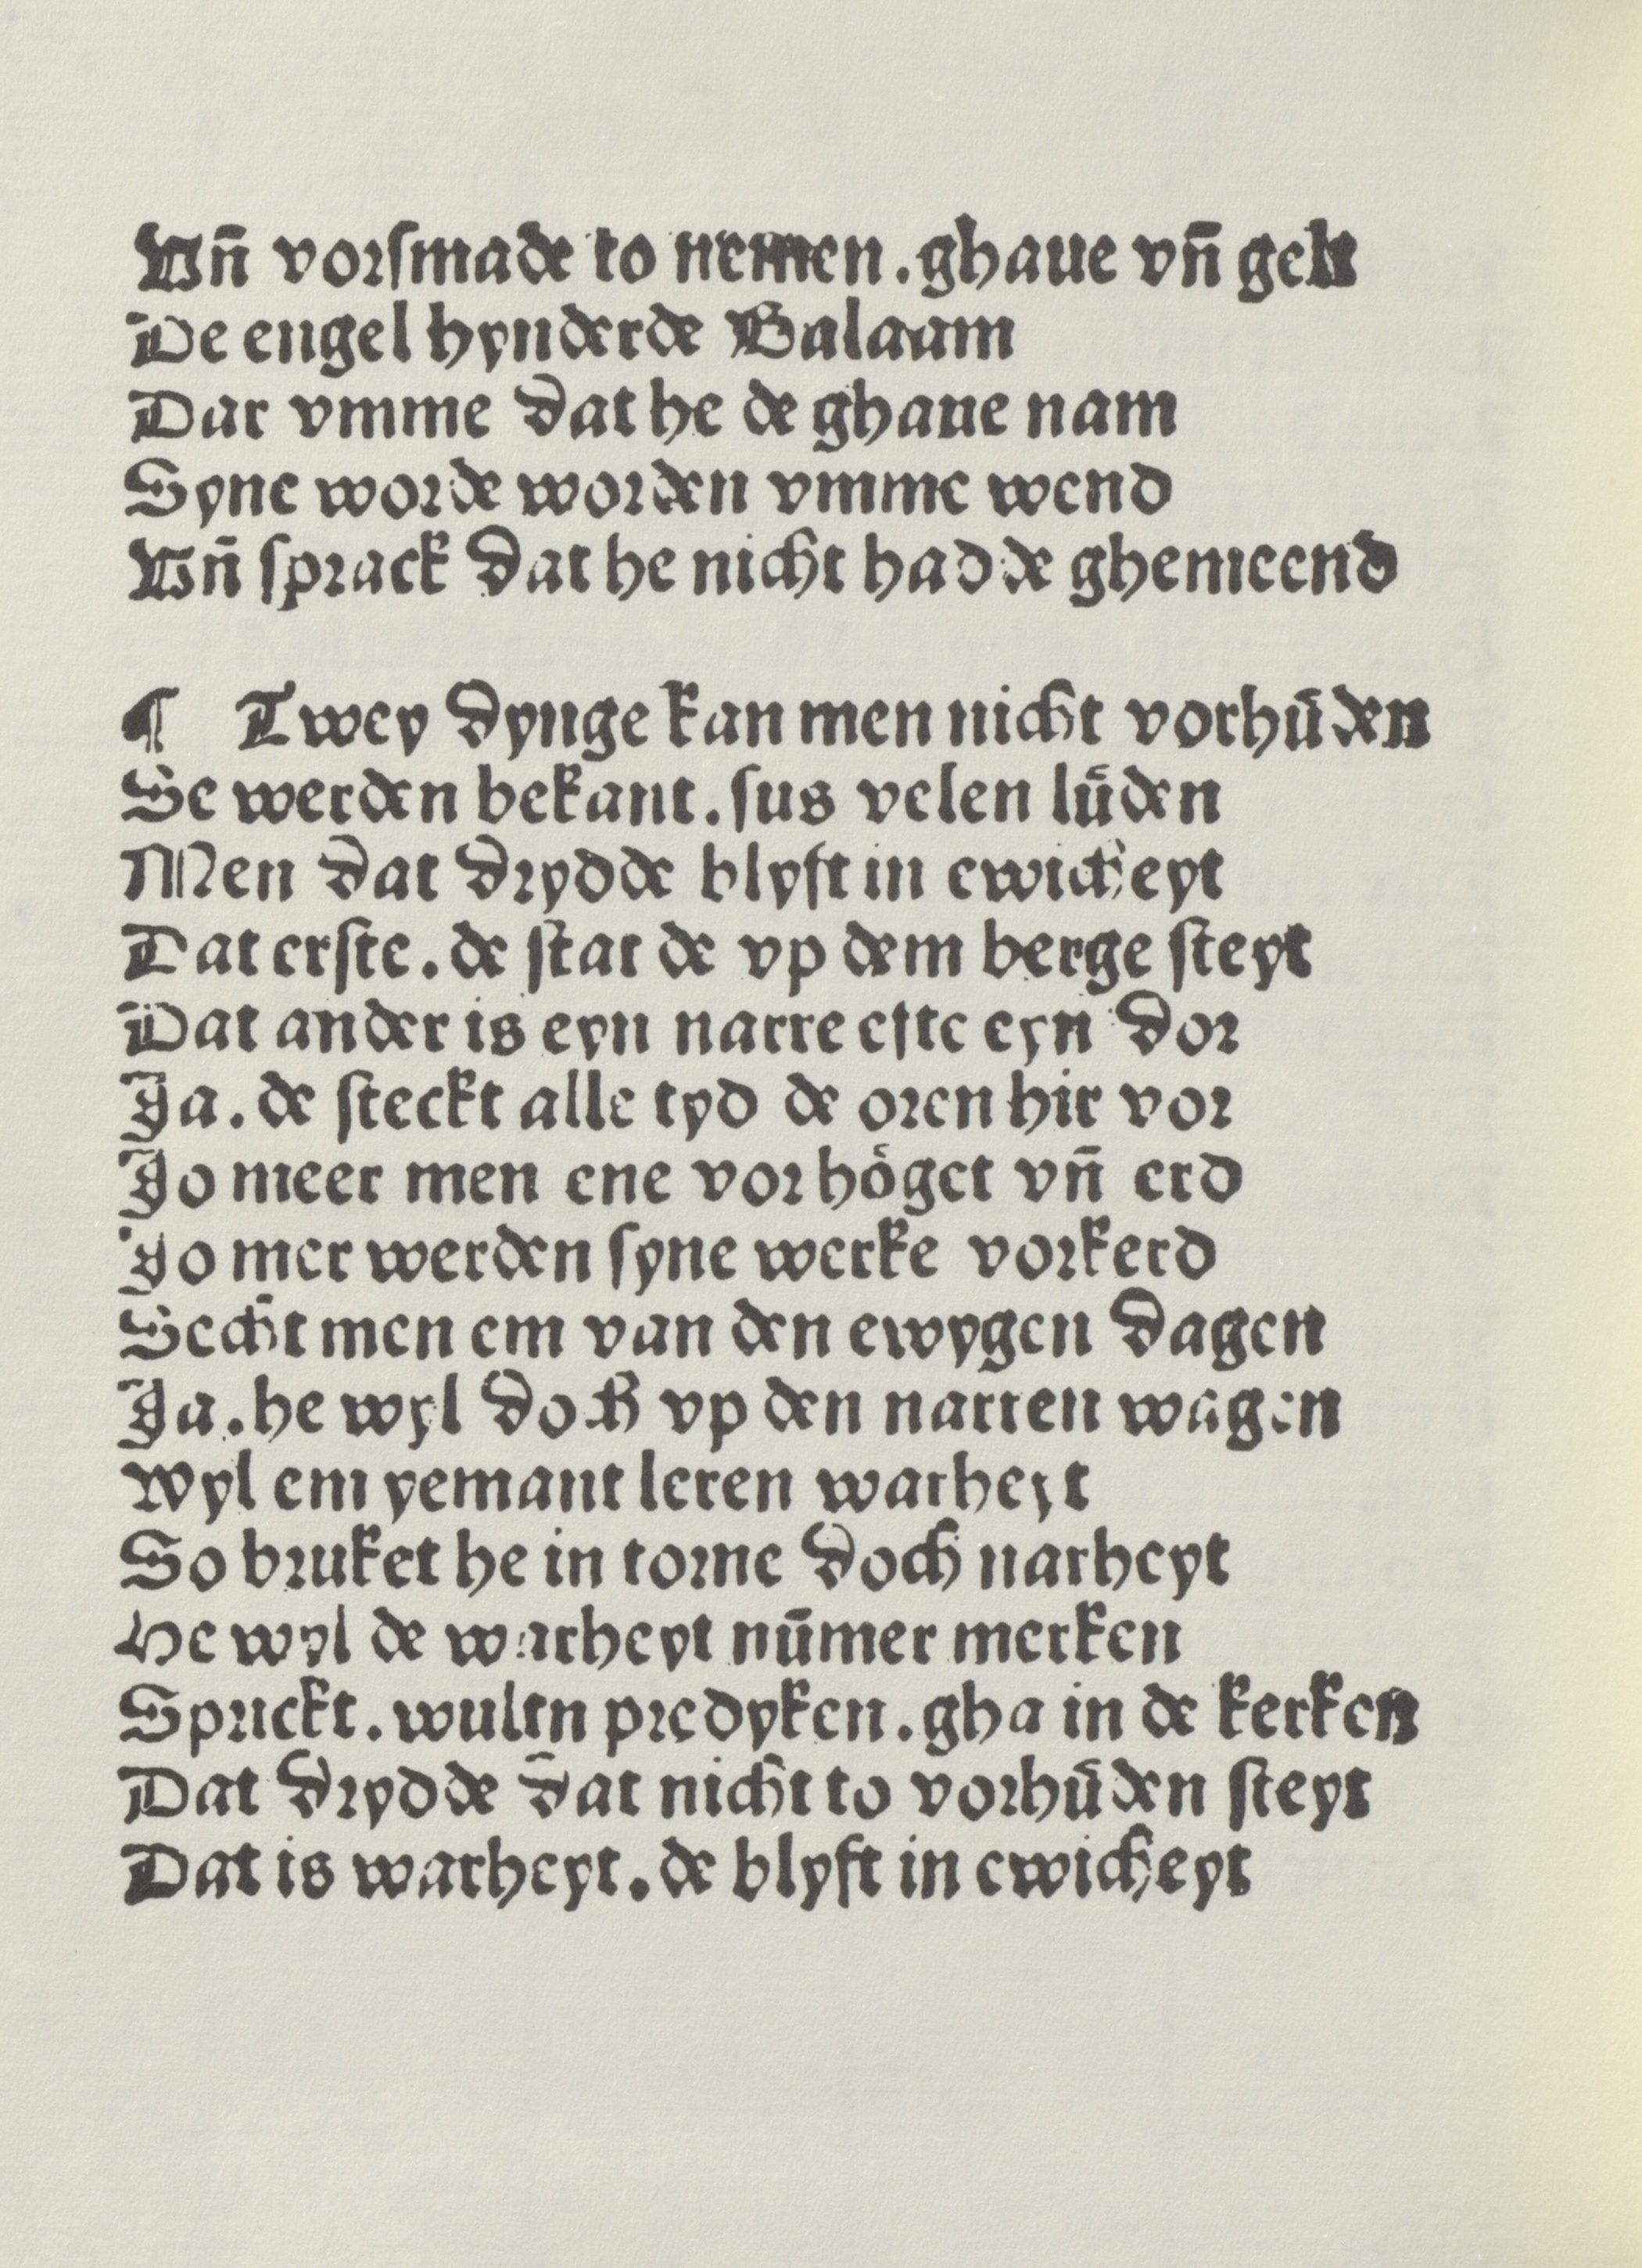 Vn̄ vorſmade to nemen . ghaue vn̄ gelt
De engel hynderde Balaam
Dar vmme dat he de ghaue nam
Syne worde worden vmme wend
Vn̄ ſprack dat he nicht hadde ghemeend
¶ Twey dynge kan men nicht vorhuͤden
Se werden bekant . ſus velen luͤden
Men dat drydde blyft in ewicheyt
Dat erſte . de ſtat de vp dem berge ſteyt
Dat ander is eyn narre efte eyn dor
Ja . de ſteckt alle tyd de oren hir vor
Jo meer men ene vorhoͤget vn̄ erd
Jo mer werden ſyne werke vorkerd
Secht men em van den ewygen dagen
Ja . he wyl doch vp den narren wagen
Wyl em yemant leren warheyt
So bruket he in torne doch narheyt
He wyl de warheyt nūmer merken
Sprickt . wultu predyken . gha in de kerken
Dat drydde dat nicht to vorhuͤden ſteyt
Dat is warheyt . de blyft in ewicheyt